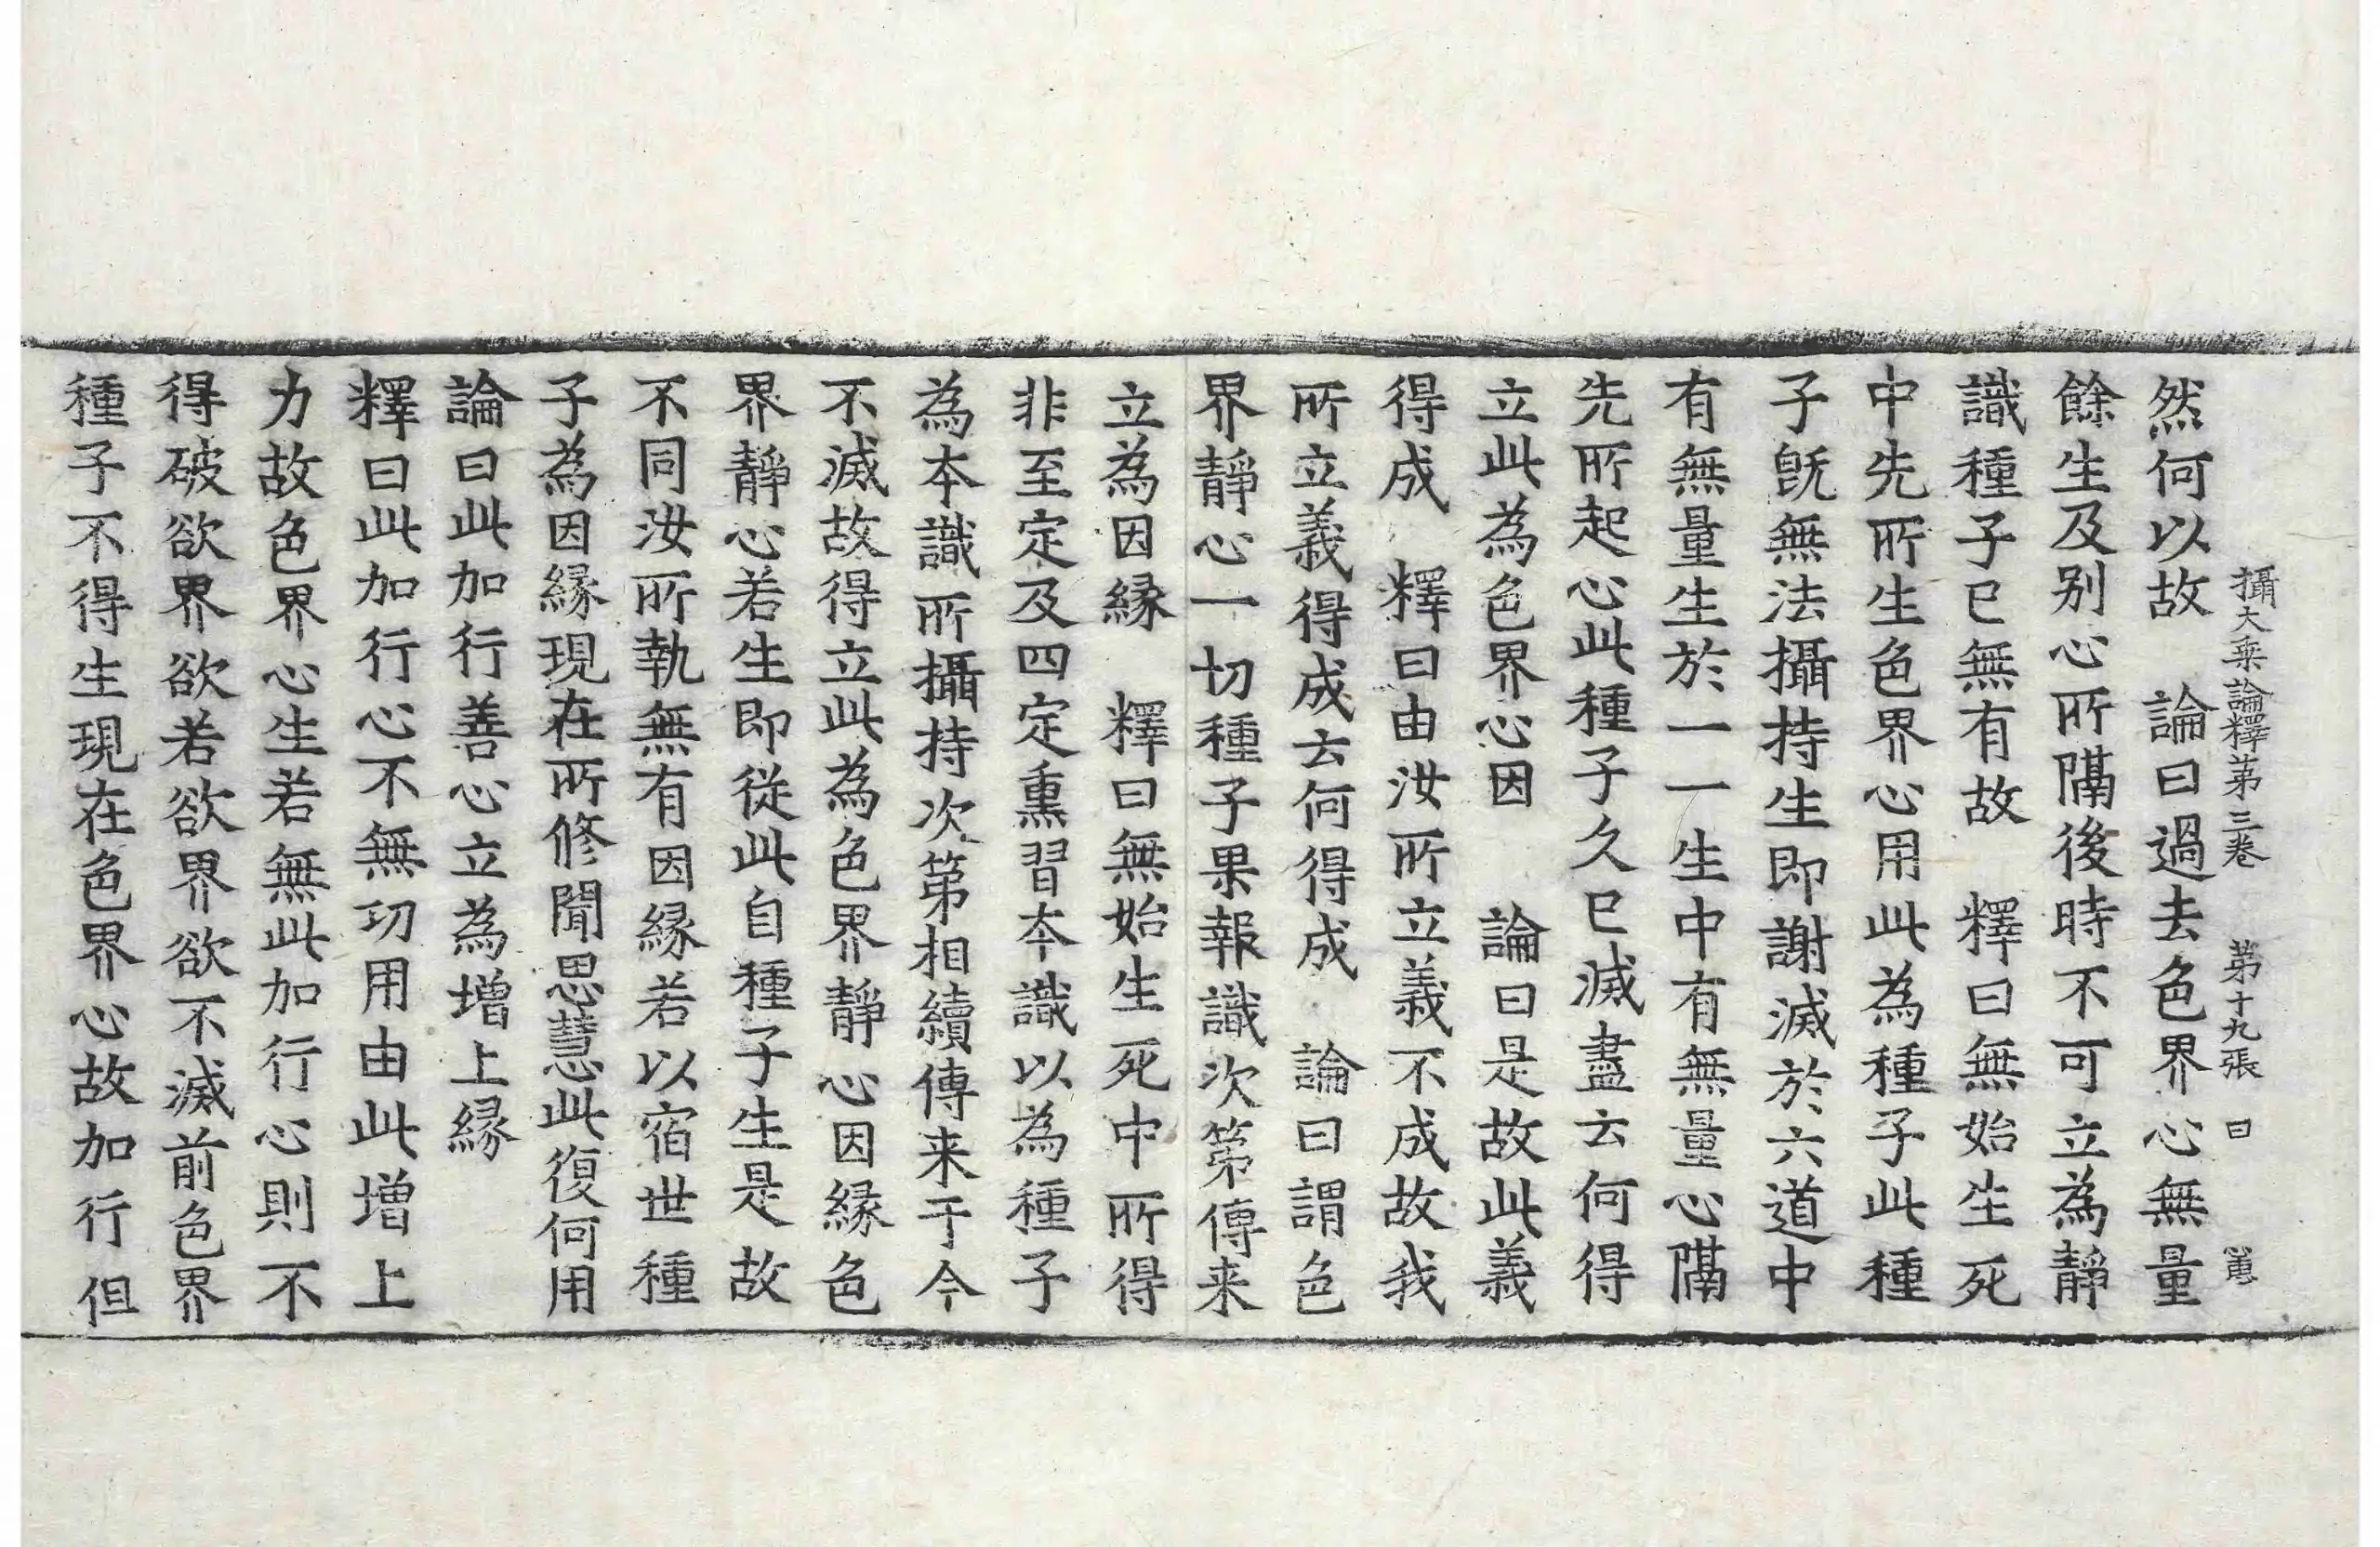 攝大乗論釋第三卷　第十九張　曰
然何以故　論曰過去色界心無量
餘生及别心所隔後時不可立為靜
識種子已無有故　釋曰無始生死
中先所生色界心用此為種子此種
子旣無法攝持生即謝滅於六道中
有無量生於一一生中有無量心隔
先所起心此種子久已滅盡云何得
立此為色界心因　論曰是故此義
得成　釋曰由汝所立義不成故我
所立義得成云何得成　論曰謂色
界靜心一切種子果報識次第傳来
立為因緣　釋曰無始生死中所得
非至定及四定熏習本識以為種子
為本識所攝持次第相續傳来于今
不滅故得立此為色界靜心因緣色
界靜心若生即從此自種子生是故
不同汝所執無有因緣若以宿世種
子為因緣現在所修聞思慧此復何用
論曰此加行善心立為增上緣
釋曰此加行心不無功用由此增上
力故色界心生若無此加行心則不
得破欲界欲若欲界欲不滅前色界
種子不得生現在色界心故加行但